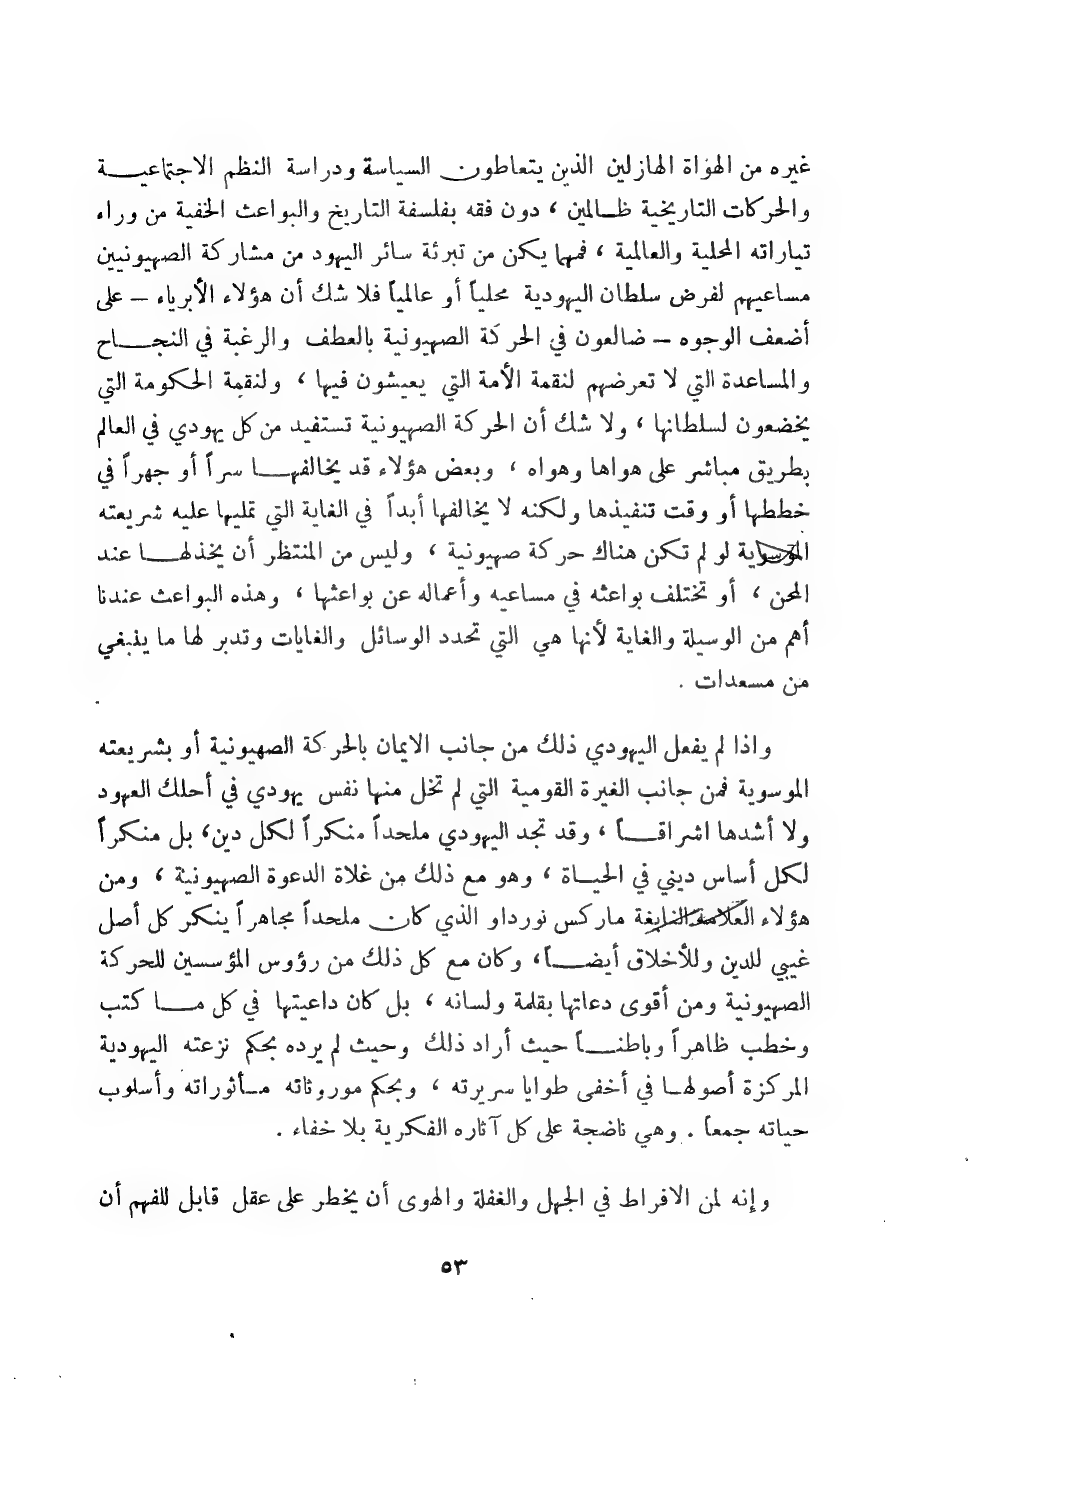 غيره من الهواة الهازلين الذين يتعاطون السياسة ودراسة النظم الاجتماعية
والحركات التاريخية ظالمين ، دون فقه بفلسفة التاريخ والبواعث الخفية من وراء
تياراته المحلية والعالمية ، فمهما يكن من تبرئة سائر اليهود من مشاركة الصهيونيين
مساعيهم لفرض سلطان اليهودية محلياً أو عالمياً فلا شك أن هؤلاء الأبرياء – على
أضعف الوجوه – ضالعون في الحركة الصهيونية بالعطف والرغبة في النجاح
والمساعدة التي لا تعرضهم لنقمة الأمة التي يعيشون فيها ، ولنقمة الحكومة التي
يخضعون لسلطانها ، ولا شك أن الحركة الصهيونية تستفيد من كل يهودي في العالم
بطريق مباشر على هواها وهواه ، وبعض هؤلاء قد يخالفها سراً أو جهراً في
خططها أو وقت تنفيذها ولكنه لا يخالفها أبداً في الغاية التي تمليها عليه شريعته
الموسوية لو لم تكن هناك حركة صهيونية ، وليس من المنتظر أن يخذلها عند
المحن ، أو تختلف بواعثه في مساعيه وأعماله عن بواعثها ، وهذه البواعث عندنا
أهم من الوسيلة والغاية لأنها هي التي تحدد الوسائل والغايات وتدبر لها ما ينبغي
من مسعدات .
واذا لم يفعل اليهودي ذلك من جانب الايمان بالحركة الصهيونية أو بشريعته
الموسوية فمن جانب الغيرة القومية التي لم تخل منها نفس يهودي في أحلك العهود
ولا أشدها اشراقاً ، وقد تجد اليهودي ملحداً منكراً لكل دين، بل منكراً
لكل أساس ديني في الحياة ، وهو مع ذلك من غلاة الدعوة الصهيونية ، ومن
هؤلاء العلامة النابغة ماركس نورداو الذي كان ملحداً مجاهراً ينكر كل أصل
غيبي للدين وللأخلاق أيضاً، وكان مع كل ذلك من رؤوس المؤسسين للحركة
الصهيونية ومن أقوى دعاتها بقلمة ولسانه ، بل كان داعيتها في كل ما كتب
وخطب ظاهراً وباطناً حيث أراد ذلك وحيث لم يرده بحكم نزعته اليهودية
المركزة أصولها في أخفى طوايا سريرته ، وبحكم موروثاته مأثوراته وأسلوب
حياته جمعا . وهي ناضجة على كل آثاره الفكرية بلا خفاء .
وإنه لمن الافراط في الجهل والغفلة والهوى أن يخطر على عقل قابل للفهم أن
٥٣